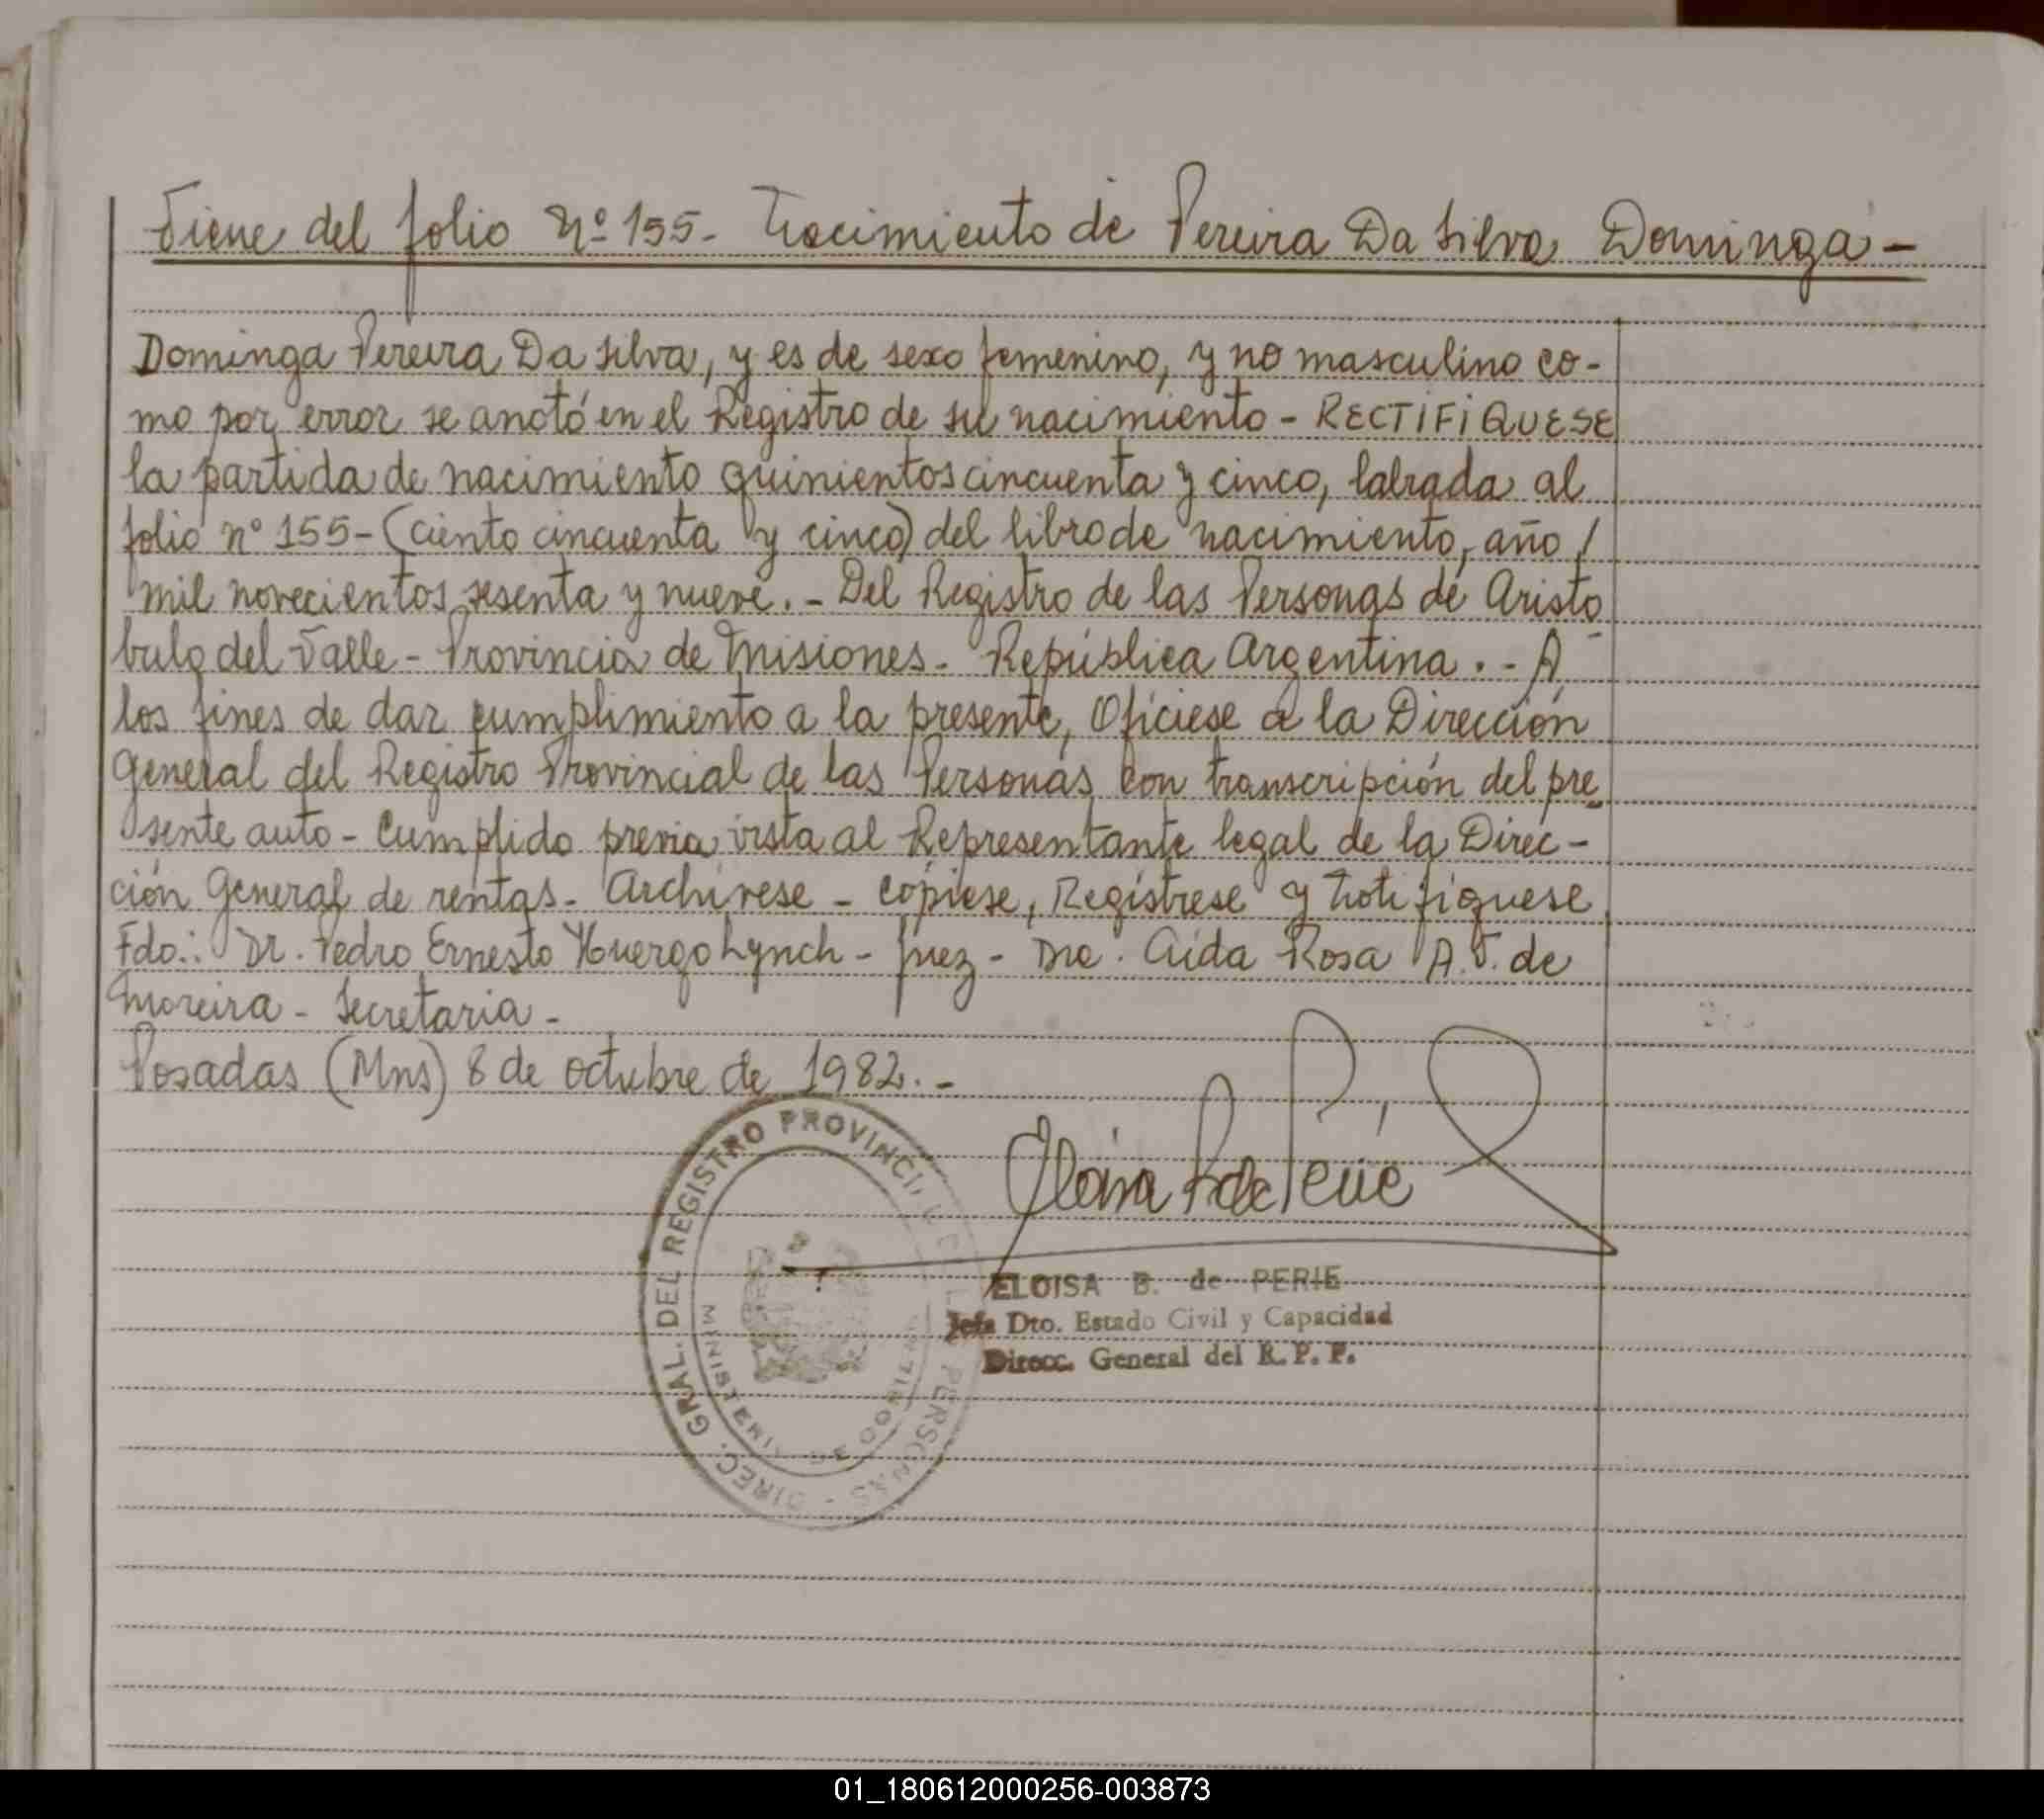 Viene del folio Nº 155 - Nacimiento de Pereira Da Silva Dominga -
Dominga Pereira Da Silva, y es de sexo femenino, y no masculino co-
mo por error se anotó en el Registro de su nacimiento - RECTIFIQUESE
la partida de nacimiento quinientos cincuenta y cinco, labrada al
folio nº 155 - (ciento cincuenta y cinco) del libro de nacimiento, año /
mil novecientos sesenta y nueve. - Del Registro de las Personas de Aristó
bulo del Valle - Provincia de Misiones - República Argentina. - A
los fines de dar cumplimiento a la presente, Ofíciese a la Dirección
General del Registro Provincial de las Personas con transcripción del pre
sente auto - Cumplido previa vista al Representante legal de la Direc-
ción General de rentas - Archívese - Cópiese, Regístrese y Notifíquese
Fdo.: Dr. Pedro Ernesto Huergo Lynch - Juez - Dra. Aida Rosa A.V. de
Moreira - Secretaria -
Posadas (Mns) 8 de octubre de 1982. -
DIREC. GRAL. DEL REGISTRO PROVINCIAL DE LAS PERSONAS
ELOISA B. de PERIE
Jefa Dto. Estado Civil y Capacidad
Direcc. General del R. P. P.
01_180612000256-003873